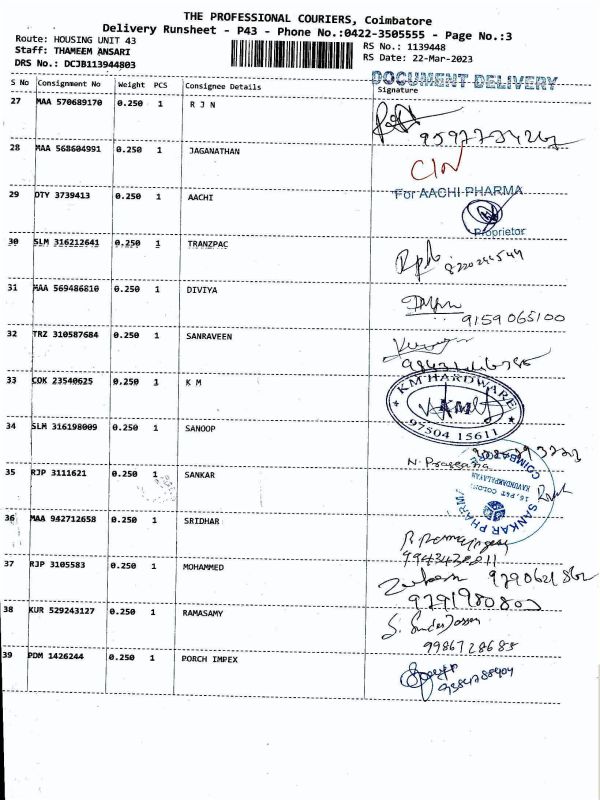 THE PROFESSIONAL COURIERS, Coimbatore
Delivery Runsheet - P43 - Phone No.:0422-3505555 - Page No.:3
Route: HOUSING UNIT 43
Staff: THAMEEM ANSARI
DRS No.: DCJB113944803
RS No.: 1139448
RS Date: 22-Mar-2023
DOCUMENT DELIVERY
S No Consignment No Weight PCS Consignee Details Signature
27 MAA 570689170 0.250 1 R J N
28 MAA 568604991 0.250 1 JAGANATHAN
29 DTY 3739413 0.250 1 AACHI
For AACHI PHARMA
Proprietor
30 SLM 316212641 0.250 1 TRANZPAC
31 MAA 569486810 0.250 1 DIVIYA
9159065100
32 TRZ 310587684 0.250 1 SANRAVEEN
33 COK 23540625 0.250 1 K M
KM HARDWARE
97504 15611
34 SLM 316198009 0.250 1 SANOOP
35 RJP 3111621 0.250 1 SANKAR
SANKAR PHARMA
COIMBATORE
36 MAA 942712658 0.250 1 SRIDHAR
37 RJP 3105583 0.250 1 MOHAMMED
9791980802
38 KUR 529243127 0.250 1 RAMASAMY
9986728685
39 PDM 1426244 0.250 1 PORCH IMPEX